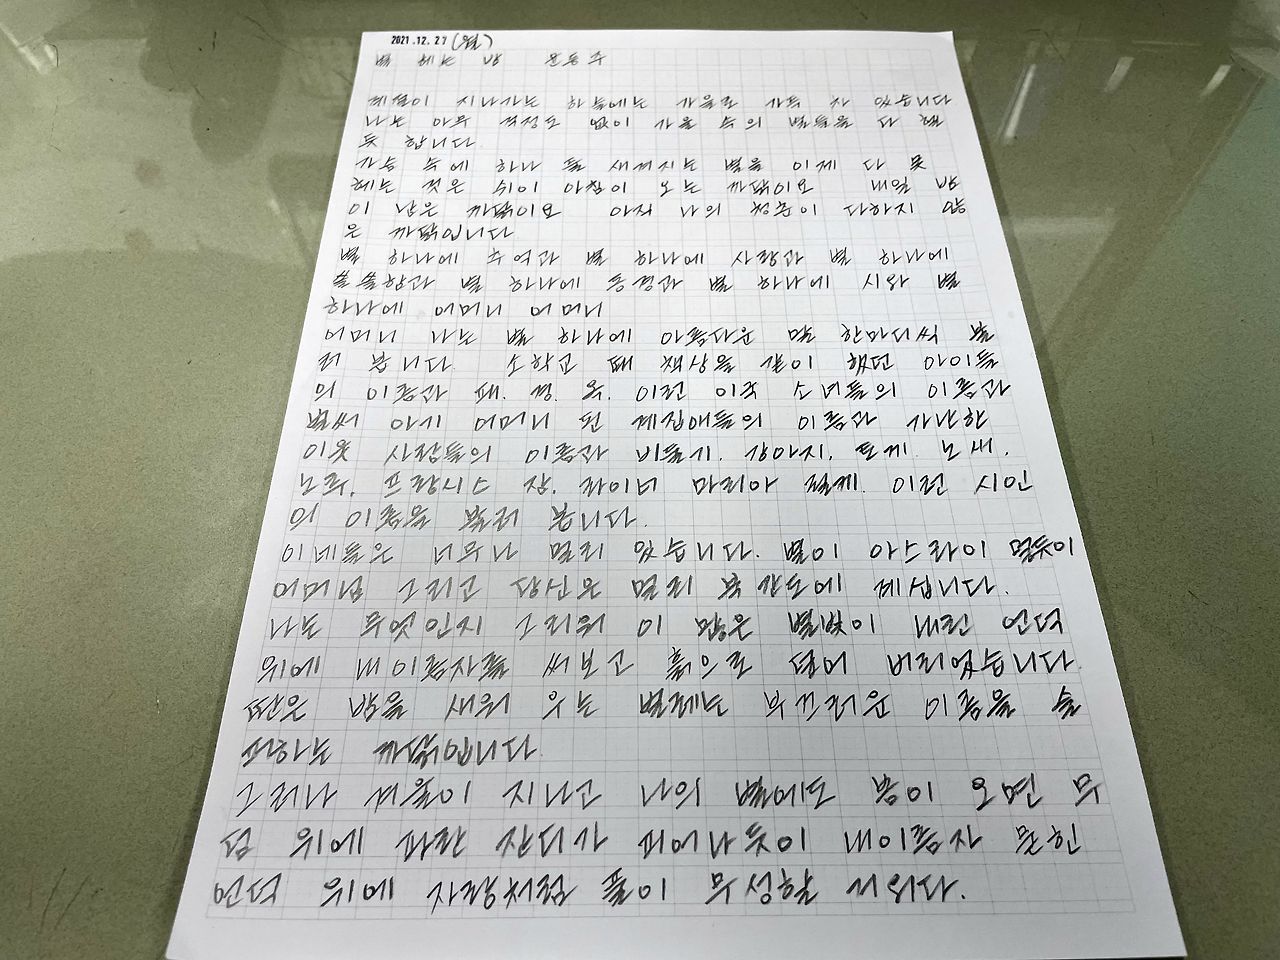 2021.12.27(월)
별 헤는 밤 윤동주
계절이 지나가는 하늘에는 가을로 가득 차 있습니다
나는 아무 걱정도 없이 가을 속의 별들을 다 헬
듯 합니다.
가슴 속에 하나 둘 새겨지는 별을 이제 다 못
헤는 것은 쉬이 아침이 오는 까닭이요 내일 밤
이 남은 까닭이요 아직 나의 청춘이 다하지 않
은 까닭입니다
별 하나에 추억과 별 하나에 사랑과 별 하나에
쓸쓸함과 별 하나에 동경과 별 하나에 시와 별
하나에 어머니 어머니
어머니 나는 별 하나에 아름다운 말 한마디씩 불
러 봅니다. 소학교 때 책상을 같이 했던 아이들
의 이름과 패, 경, 옥, 이런 이국 소녀들의 이름과
벌써 아기 어머니 된 계집애들의 이름과 가난한
이웃 사람들의 이름과 비둘기, 강아지, 토끼, 노새,
노루, 프랑시스 잠, 라이너 마리아 릴케, 이런 시인
의 이름을 불러 봅니다.
이네들은 너무나 멀리 있습니다. 별이 아스라이 멀듯이
어머님 그리고 당신은 멀리 북간도에 계십니다.
나는 무엇인지 그리워 이 많은 별빛이 내린 언덕
위에 내 이름자를 써보고 흙으로 덮어 버리었습니다.
딴은 밤을 새워 우는 벌레는 부끄러운 이름을 슬
퍼하는 까닭입니다.
그러나 겨울이 지나고 나의 별에도 봄이 오면 무
덤 위에 파란 잔디가 피어나듯이 내이름자 묻힌
언덕 위에 자랑처럼 풀이 무성할 거외다.